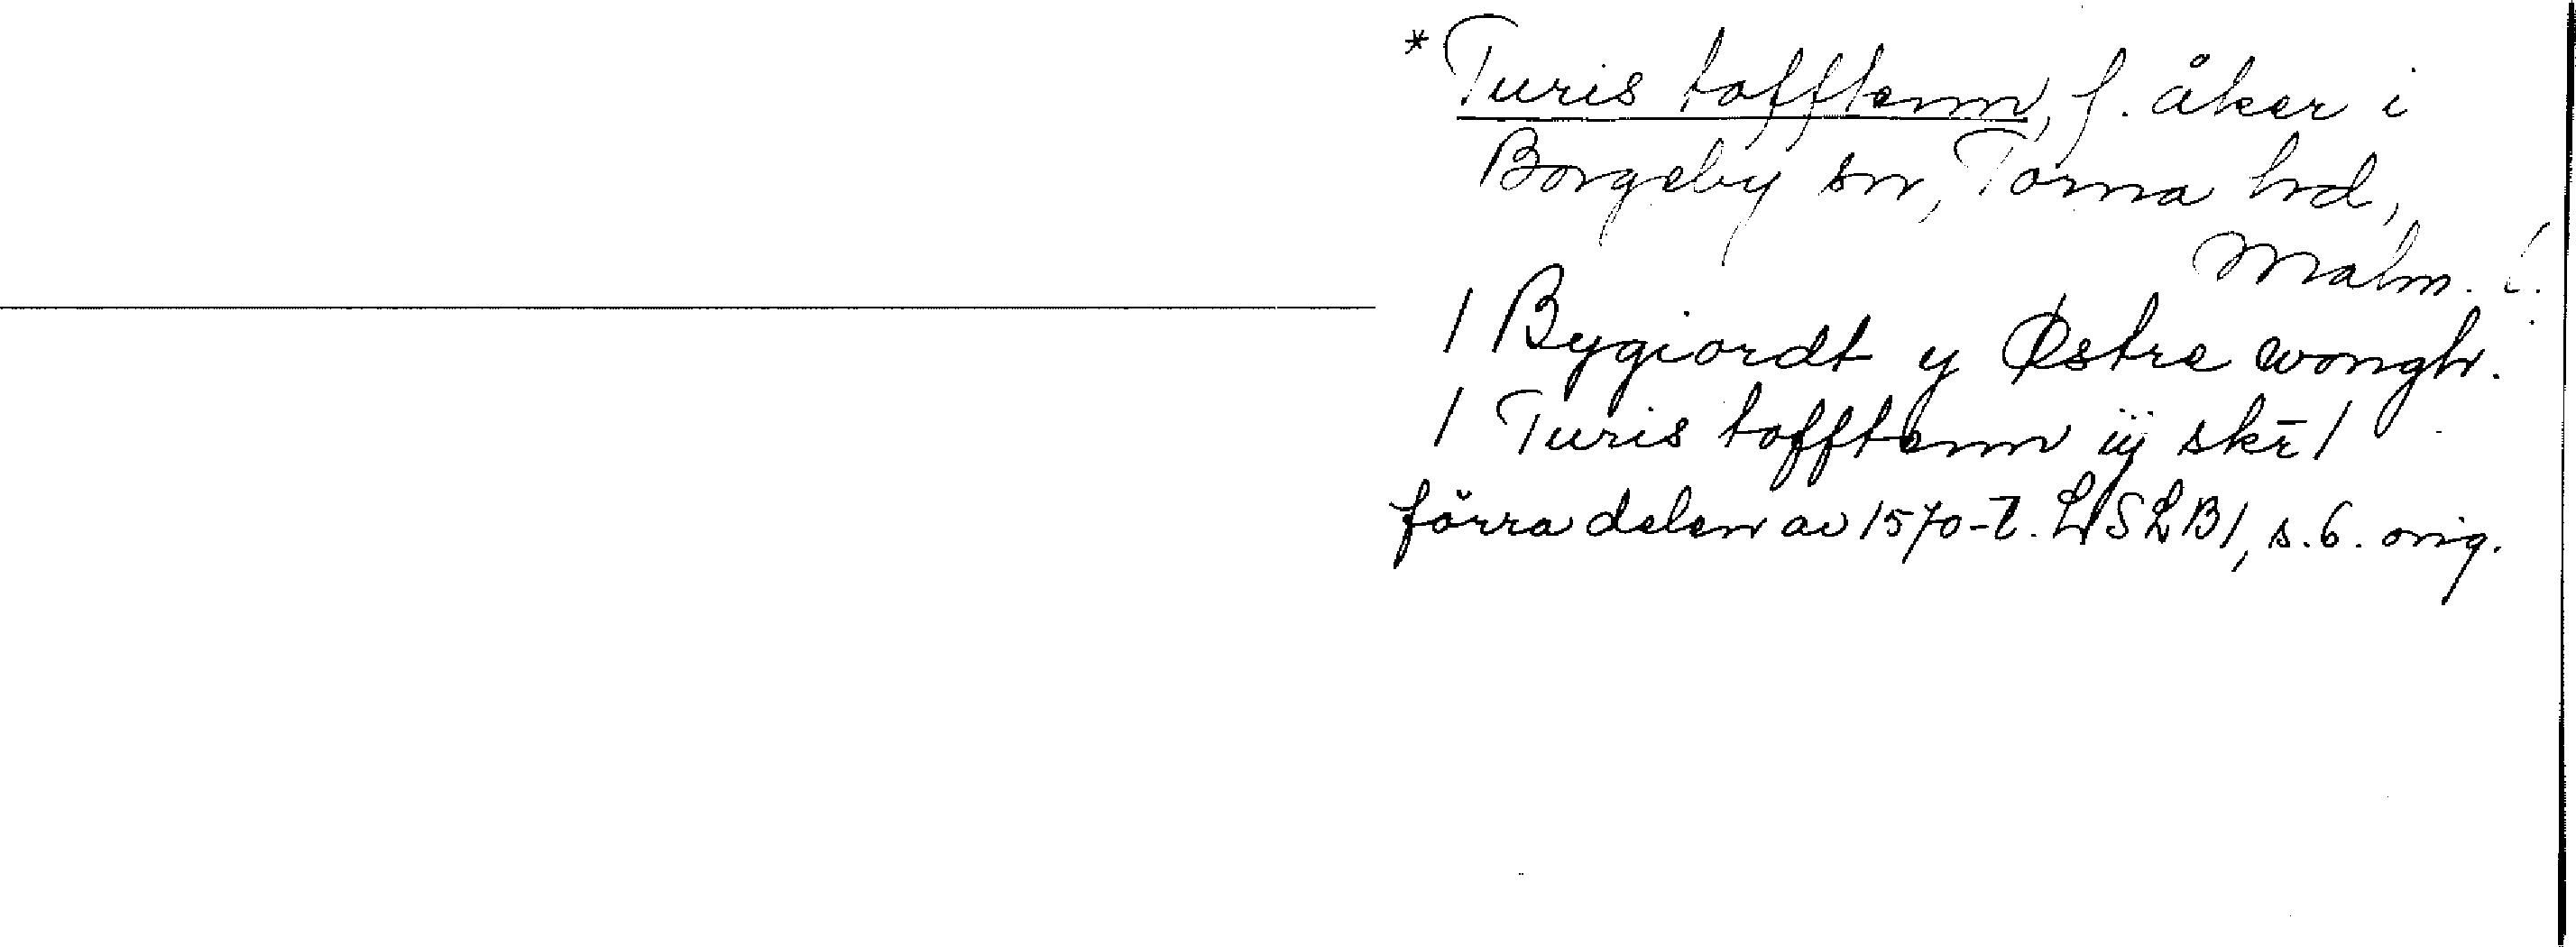 * Turis tofftenn, f. åker i
Borgeby sn, Torna hd,
Malm. l.
/ Bygiordt y Østre wongh.
/ Turis tofftenn iij skr̄ /
förra delen av 1570-t. LSLB1, s. 6. orig.